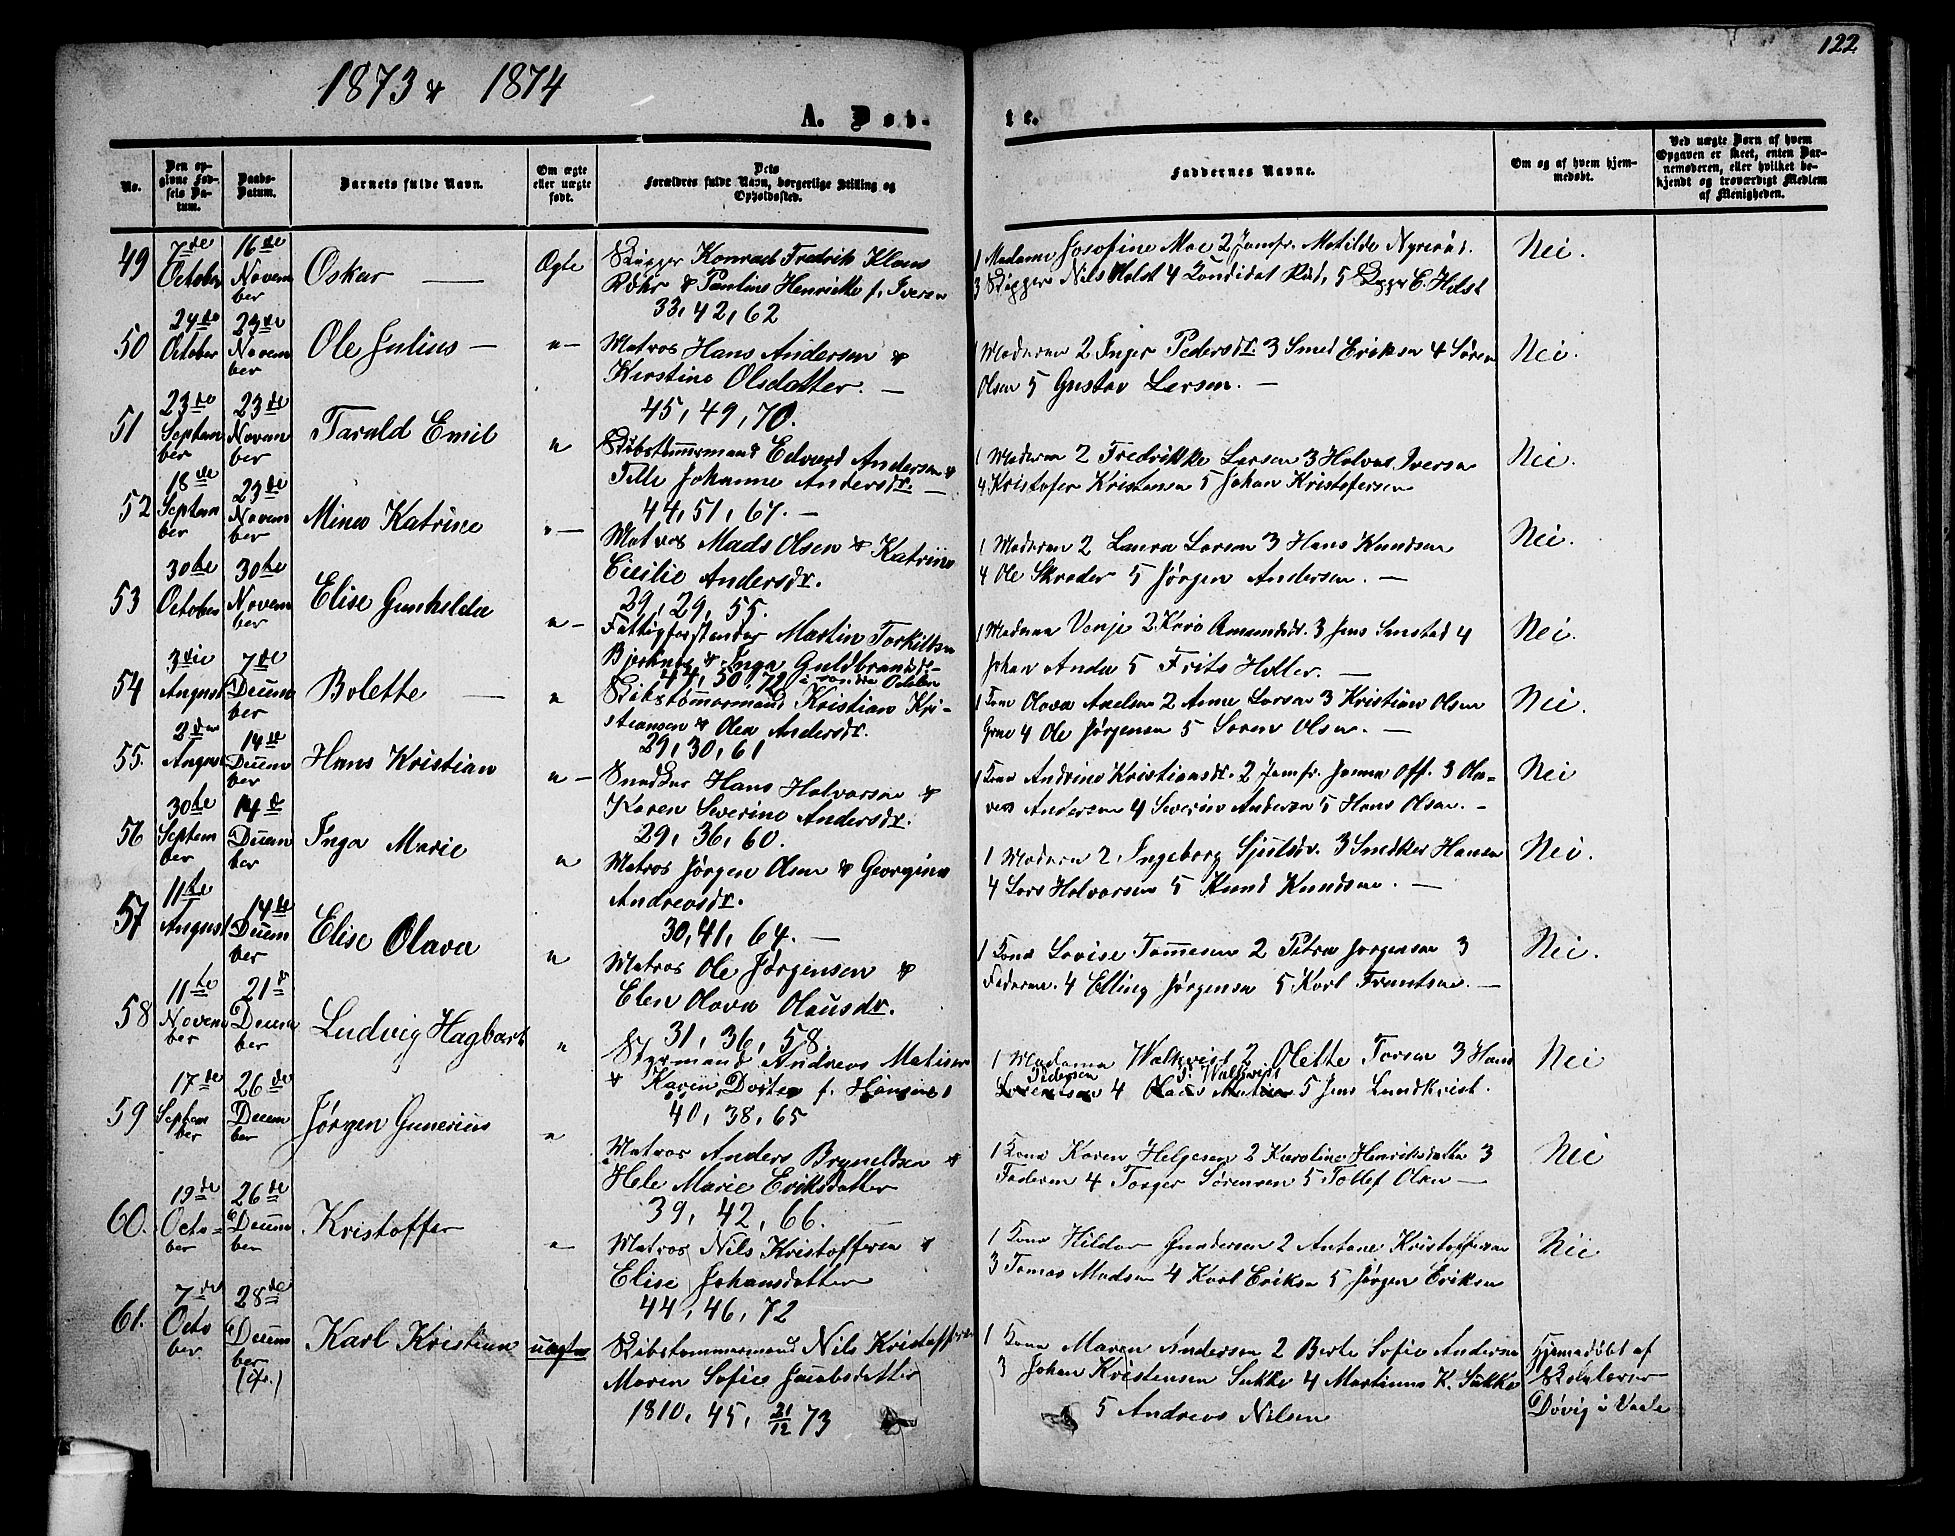 122
1873 & 1874
A. Døb-
te.
No.
Den op-
givne Fød-
sels Da-
tum.
Daabs-
Datum.
Barnets fulde Navn.
Om ægte
eller uægte
født.
Dets
Forældres fulde Navn, borgerlige Stilling og
Opholdssted.
Faddernes Navne.
Om og af hvem hjem-
medøbt.
Ved uægte Børn af hvem
Opgaven er skeet, enten Bar-
nemoderen, eller hvilket be-
kjendt og troværdigt Medlem
af Menigheden.
49
7de
October
16de
Novem
ber
Oskar
Ægte
Skipper Konrad Fredrik Klaus
Röhr & Pauline Henriette f. Iversen
33, 42, 62
1 Madame Josofine Moe 2 Jomfr. Matilde Nyrerød.
3 Skipper Nils Holst 4 Kandidat Rud, 5 E. Holst
Nei.
50
24de
October
23de
Novem
ber
Ole Julius
"
Matros Hans Andersen &
Kirstine Olsdatter.
45, 49, 70.
1 Moderen 2 Inger Pedersdr. 3 Smed Eriksen 4 Søren
Olsen 5 Gustav Larsen.
Nei.
51
23de
Septem
ber
23de
Novem
ber
Tarald Emil
"
Skibstømmermand Edvard Andersen &
Tille Johanne Andersdr.
44, 51, 67.
1 Moderen 2 Fredrikke Larsen 3 Halvor Iversen
4 Kristofer Kristensen 5 Johan Kristofersen
Nei.
52
18de
Septem
ber
23de
Novem
ber
Mina Katrine
"
Matros Mads Olsen & Katrine
Cicilie Andersdr.
29, 29, 55.
1 Moderen 2 Laura Larsen 3 Hans Knudsen
4 Ole Skrøder 5 Jørgen Andersen.
Nei.
53
30te
October
30te
Novem
ber
Elise Gunhilda
"
Fattigforstander Martin Torkildsen
& Inga Guldbrandsdr.
44, 50, 72
1 Madame Venje 2 Karo Amundsdr. 3 Jens Smstad 4
Johan Anda 5 Frits Holler.
Nei.
54
3die
August
7de
Decem
ber
Bolette
"
Skibstømmermand Kristian Kri-
stiansen & Olea Andersdr.
29, 30, 61
1 Kone Olava Axelsen 2 Anne Larsen 3 Kristian Olsen
4 Ole Jørgensen 5 Soren Olsen.
Nei.
55.
2den
August
14de
Decem
ber
Hans Kristian
"
Snedker Hans Halvorsen &
Karen Severine Andersdr.
29, 36, 60.
1 Kone Andrine Kristiansdr. 2 Jomfr. Off. 3 Ola-
ves Andersen 4 Severin Andersen 5 Hans Olsen.
Nei
56
30te
Septem
ber
14de
Decem
ber
Inga Marie
"
Matros Jørgen Olsen & Georgine
Andreasdr.
30, 41, 64.
1 Moderen 2 Ingeborg 3 Snedker Hansen
4 Lars Halvorsen 5 Knud Knudsen.
Nei.
57
11te
August
14de
Decem
ber
Elise Olava
"
Matros Ole Jørgensen &
Elen Olava Olausdr.
31, 36, 58.
1 Kone Lovise Tomesen 2 Petra Jorgensen 3
Faderen. 4 Elling Jørgensen 5 Karl Frantsen.
Nei.
58
11te
Novem
ber
21de
Decem
ber
Ludvig Hagbart
"
Styrmand Andreas Matisen
& Karen Dortea f. Hansen
40, 38, 65
1 Madame Walkvist 2 Olette Torsen 3 Hans
Pedersen
P. Walkvist
4 5 Jens Lundkvist.
Nei
59
17de
Septem
ber
26de
Decem
ber
Jørgen Gunerius
"
Matros Anders Brynildsen &
Hele Marie Eriksdatter
39, 42, 66.
1 Kone Karen Helgesen 2 Karoline Henriksdatter 3
Faderen 4 Torger Sørensen 5 Tollef Olsen
Nei
60.
19de
Octo-
ber
26de
Decem
ber
Kristoffer
"
Matros Nils Kristoffersen &
Elise Johansdatter
44, 46, 72
1 Kone Hilda Gundersen 2 Antone Kristoffersen
3 Tomas Madsen 4 Karl Eriksen 5 Jørgen Eriksen
Nei
61.
7de
Octo
ber
28de
Decem
ber
Karl Kristian
uægte
Skibstømmermand Nils Kristoffersen
Maren Sofie Jacobsdatter
1810, 45, 31/12 73
1 Kone Maren Andersen 2 Berte Sofie Andersen
3 Johan Kristensen Sukke 4 Martinus K. Sukke
5 Andreas Nilsen
Hjemmedøbt af
Skolelærer
Døvig i Vaale